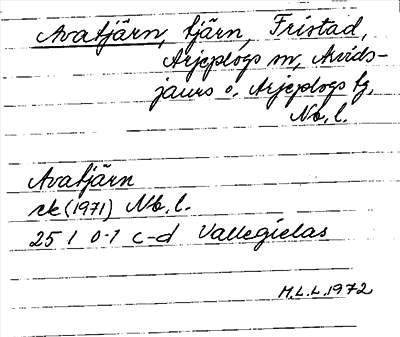 Avatjärn, tjärn, Fristad,
Arjeplogs sn, Arvids-
jaurs o. Arjeplogs tg,
Nb. l.
Avatjärn
ek (1971) Nb. l.
25 I 0-1 c-d Vallegielas
M.L.L. 1972